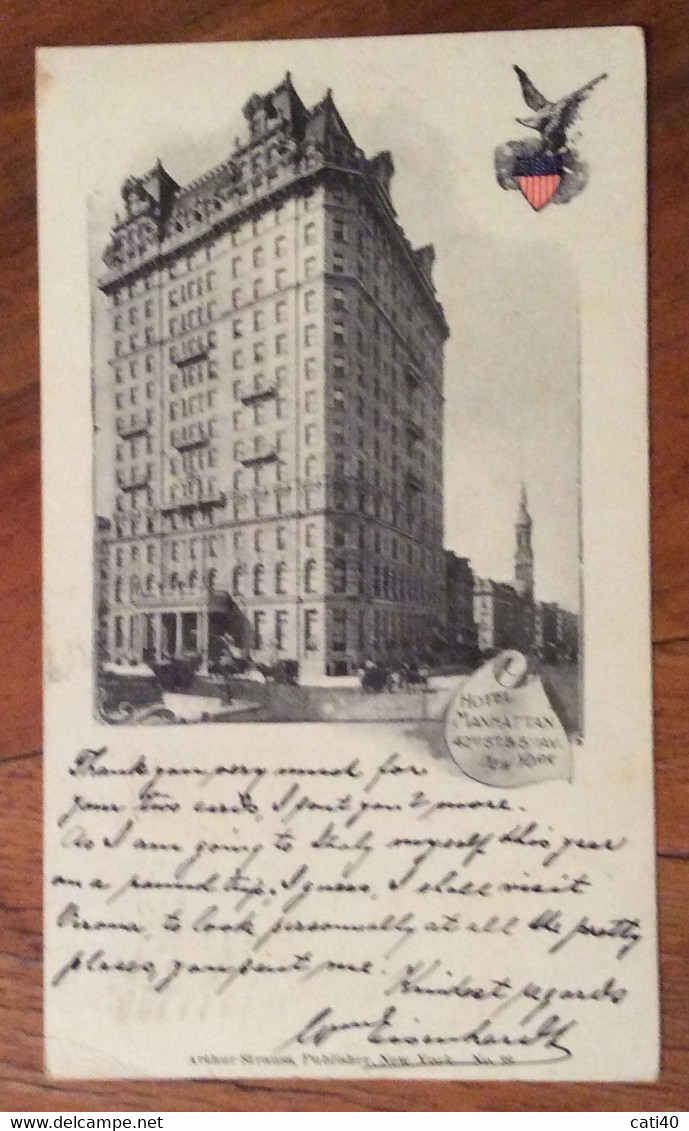 HOTEL
MANHATTAN
42ND ST & 5TH AV.
NEW YORK
Thank you very much for
your two cards, I sent you 2 more.
As I am going to Italy myself this year
on a round trip, I guess, I shall visit
Verona, to look personally at all the pretty
places, you sent me.
Kindest regards
Wm Eisenhardt
Arthur Strauss, Publisher, New York No.
cati40